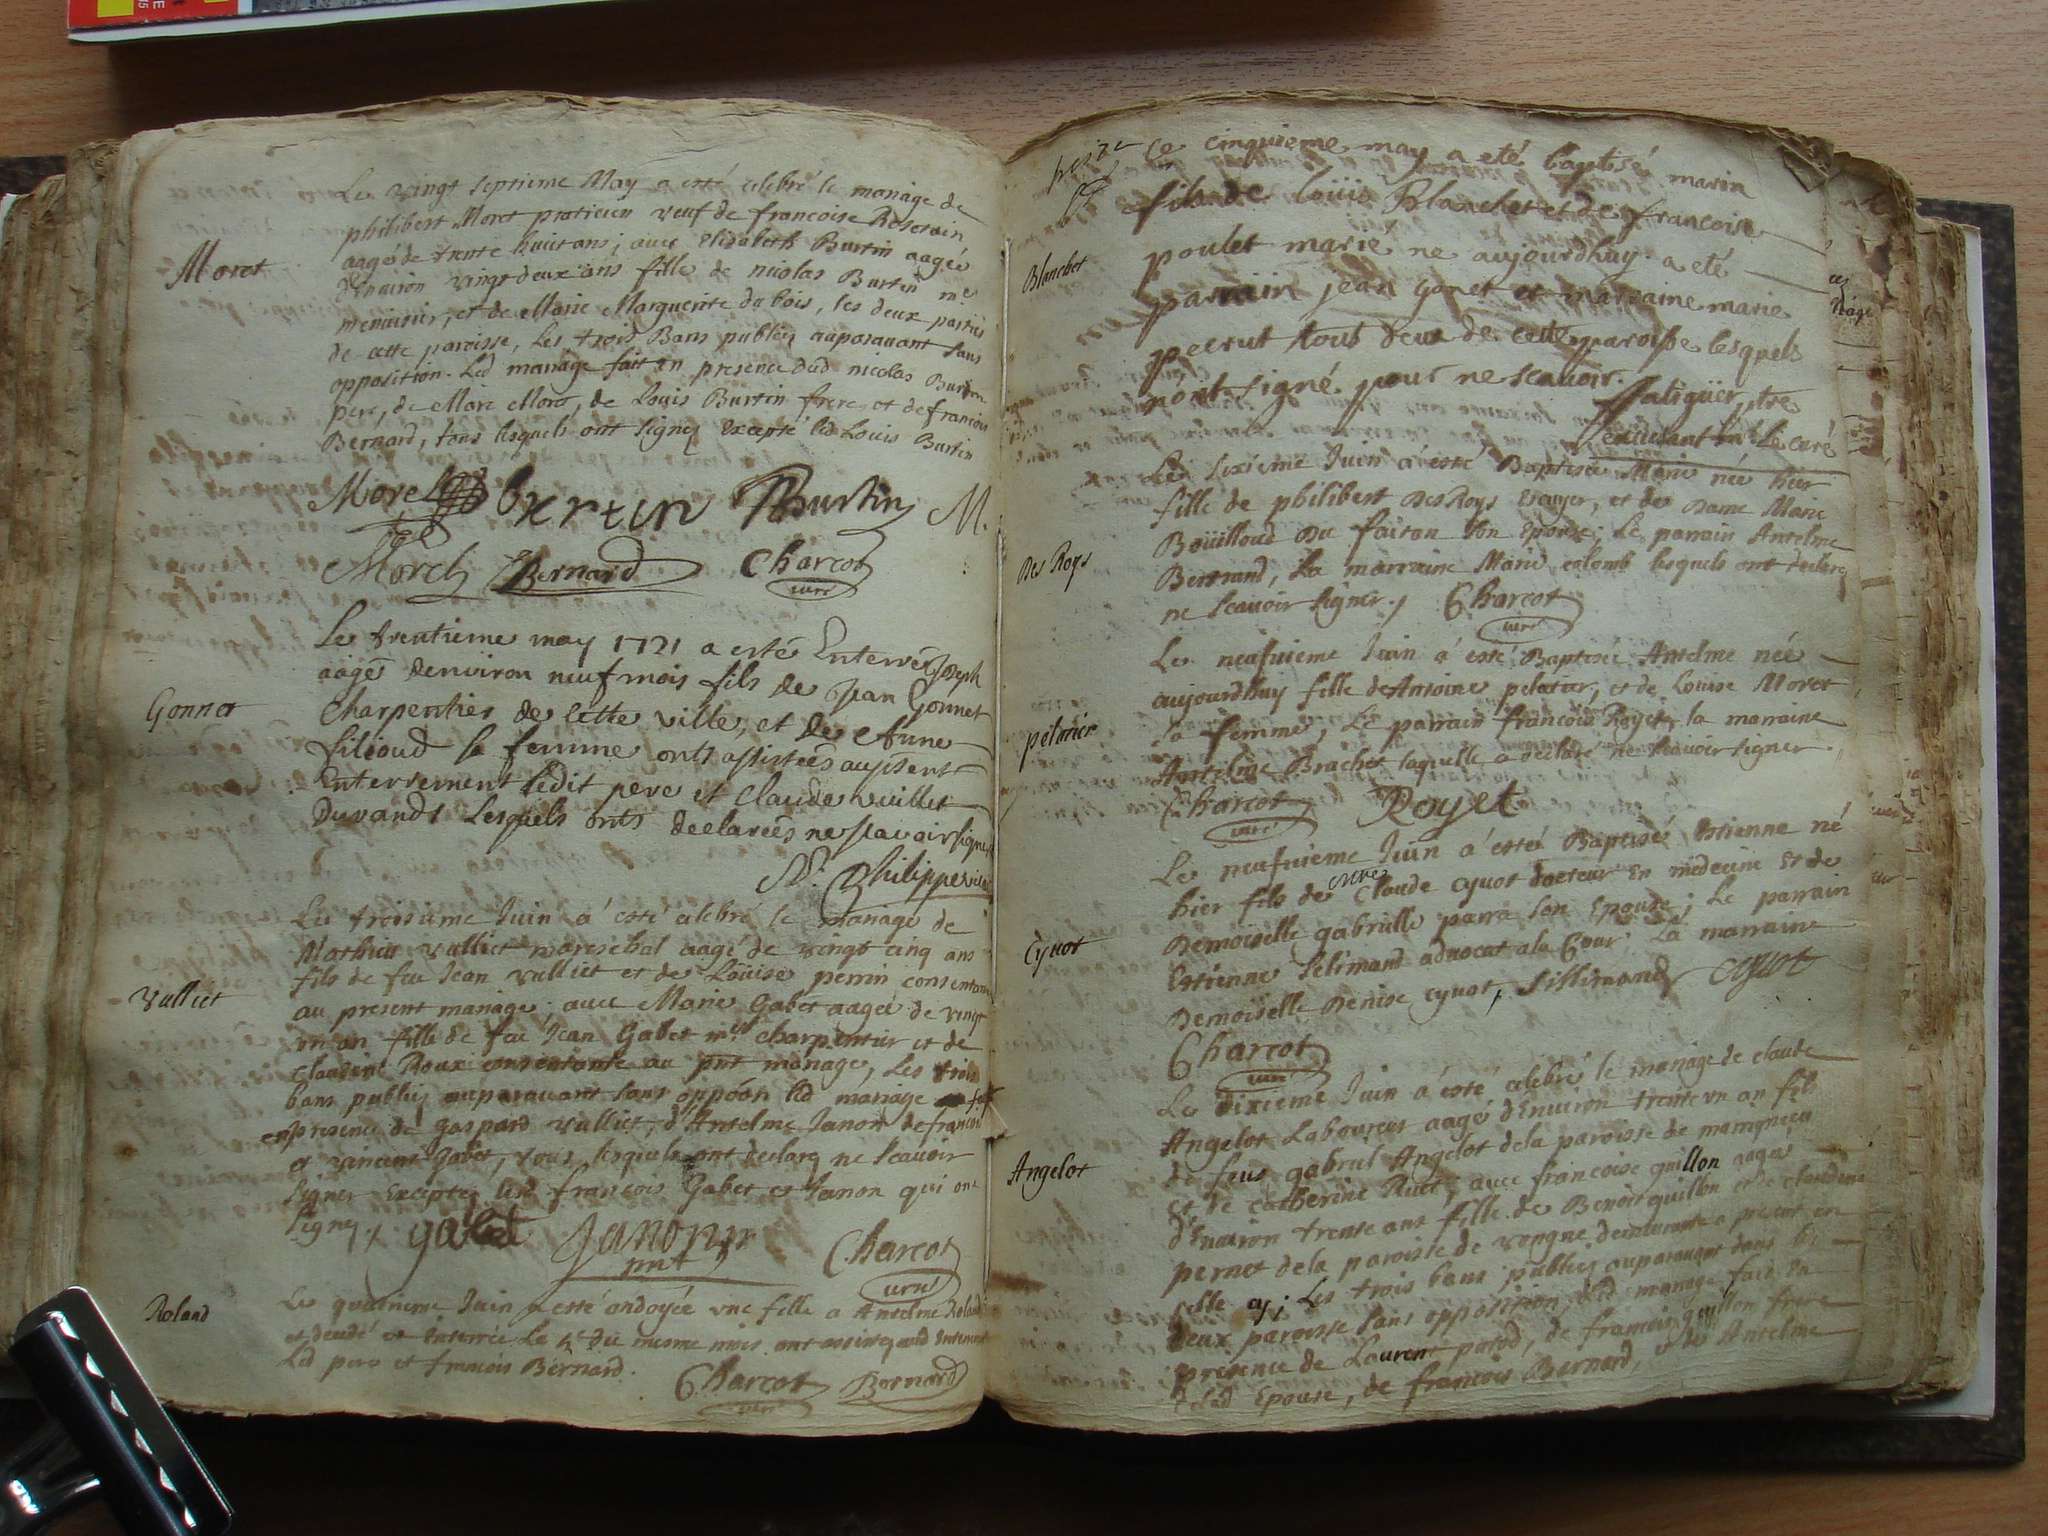 Le vingt septieme May a esté celebré le mariage de
philibert Moret praticien veuf de francoise
Moret
aagé de trente huit ans; avec Elisabeth Burtin aagée
d'Environ vingt deux ans fille de nicolas Burtin me
menuisier, et de Marie Marguerite du bois, les deux parties
de cette paroisse, Les trois Bans publiez auparavant sans
opposition. Led mariage fait en presence dud nicolas Burtin
pere, de Marc Moret, de Louis Burtin frere, et de francois
Bernard, tous lesquels ont signez Excepté led Louis Burtin
Morel Bxrtin Burtin M.
Morel Bernard Charcot
curé
Le trentieme may 1721 a esté Enterré Joseph
aagé denviron neuf mois fils de Jean Gonnet
Gonnet
Charpentier de cette ville, et de Anne
filioud sa femme onts assistées au present
Enterrement ledit pere et Claude vuillet
Durands Lesquels onts declarées ne scavoir signer
Le troisieme Juin a esté celebré le mariage de
Mathieu vulliet mareschal aagé de vingt cinq ans
fils de feu Jean vulliet et de Louise perrin consentante
Vulliet
au present mariage; avec Marie Gabet aagée de vingt
un an fille de feu Jean Gabet me charpentier et de
Claudine Roux consentante au pnt mariage, Les trois
bans publiez auparavant sans oppõon led mariage fait
en presence de gaspard vulliet, d'Antelme Janon de francois
et vincent Gabet, tous lesquels ont declaré ne scavoir
signer Exceptez led francois Gabet et Janon qui ont
signez, gabet Janon Charcot
curé
Roland
Le quatrieme Juin a esté ondoyée une fille a Antelme Roland
et decedé et Enterrée Le 5e du mesme mois ont assisté aud Enterrement
Led pere et francois Bernard.
Charcot Bernard
curé
Ce cinquieme may a eté baptisé marin
fils de loüis Blanchet et de francoise
Blanchet
poulet marie ne aujourdhuy. a eté
parrain jean gonet et marraine marie
peerut tout deux de cette paroisse lesquels
n'ont signé pour ne scavoir.
Le sixieme Juin a esté Baptisée Marie née hier
fille de philibert Des Roys Ecuyer, et de Dame Marie
Des Roys
Boüilloud Du faiton son Epouse; Le parrain Antelme
Bertrand, La marraine Marie colomb lesquels ont declaré
ne scavoir signer. Charcot
curé
Le neufvieme Juin a esté Baptisée Antelme née
aujourdhuy fille de Antoine peletier, et de Louise Moret
peletier
sa femme, Le parrain francois Royet, la marraine
Antelme Brachet laquelle a declaré ne scavoir signer.
Charcot Royet
curé
Le neufvieme Juin a esté Baptisé Estienne né
hier fils de Claude Cyvot docteur En medecine Et de
Demoiselle gabrielle parra son Epouse; Le parrain
Cyvot
Estienne Silimand advocat a la Cour La marraine
Demoiselle Denise cyvot, Sillimand Cyvot
Charcot
curé
Le dixieme Juin a esté celebré le mariage de claude
Angelot Laboureur aagé d'Environ trente un an fils
de feus gabriel Angelot de la paroisse de marignieu
Angelot
et de catherine Ruet, avec francoise guillon aagée
d'Environ trente ans fille de Benoit guillon et de claudine
pernet de la paroisse de vongne demeurante a present en
celle cy; Les trois bans publiez auparavant dans les
deux paroisse sans opposition, Led mariage fait En
presence de Laurent parod, de francois guillon frere
de lad Epouse, de francois Bernard, et de Antelme